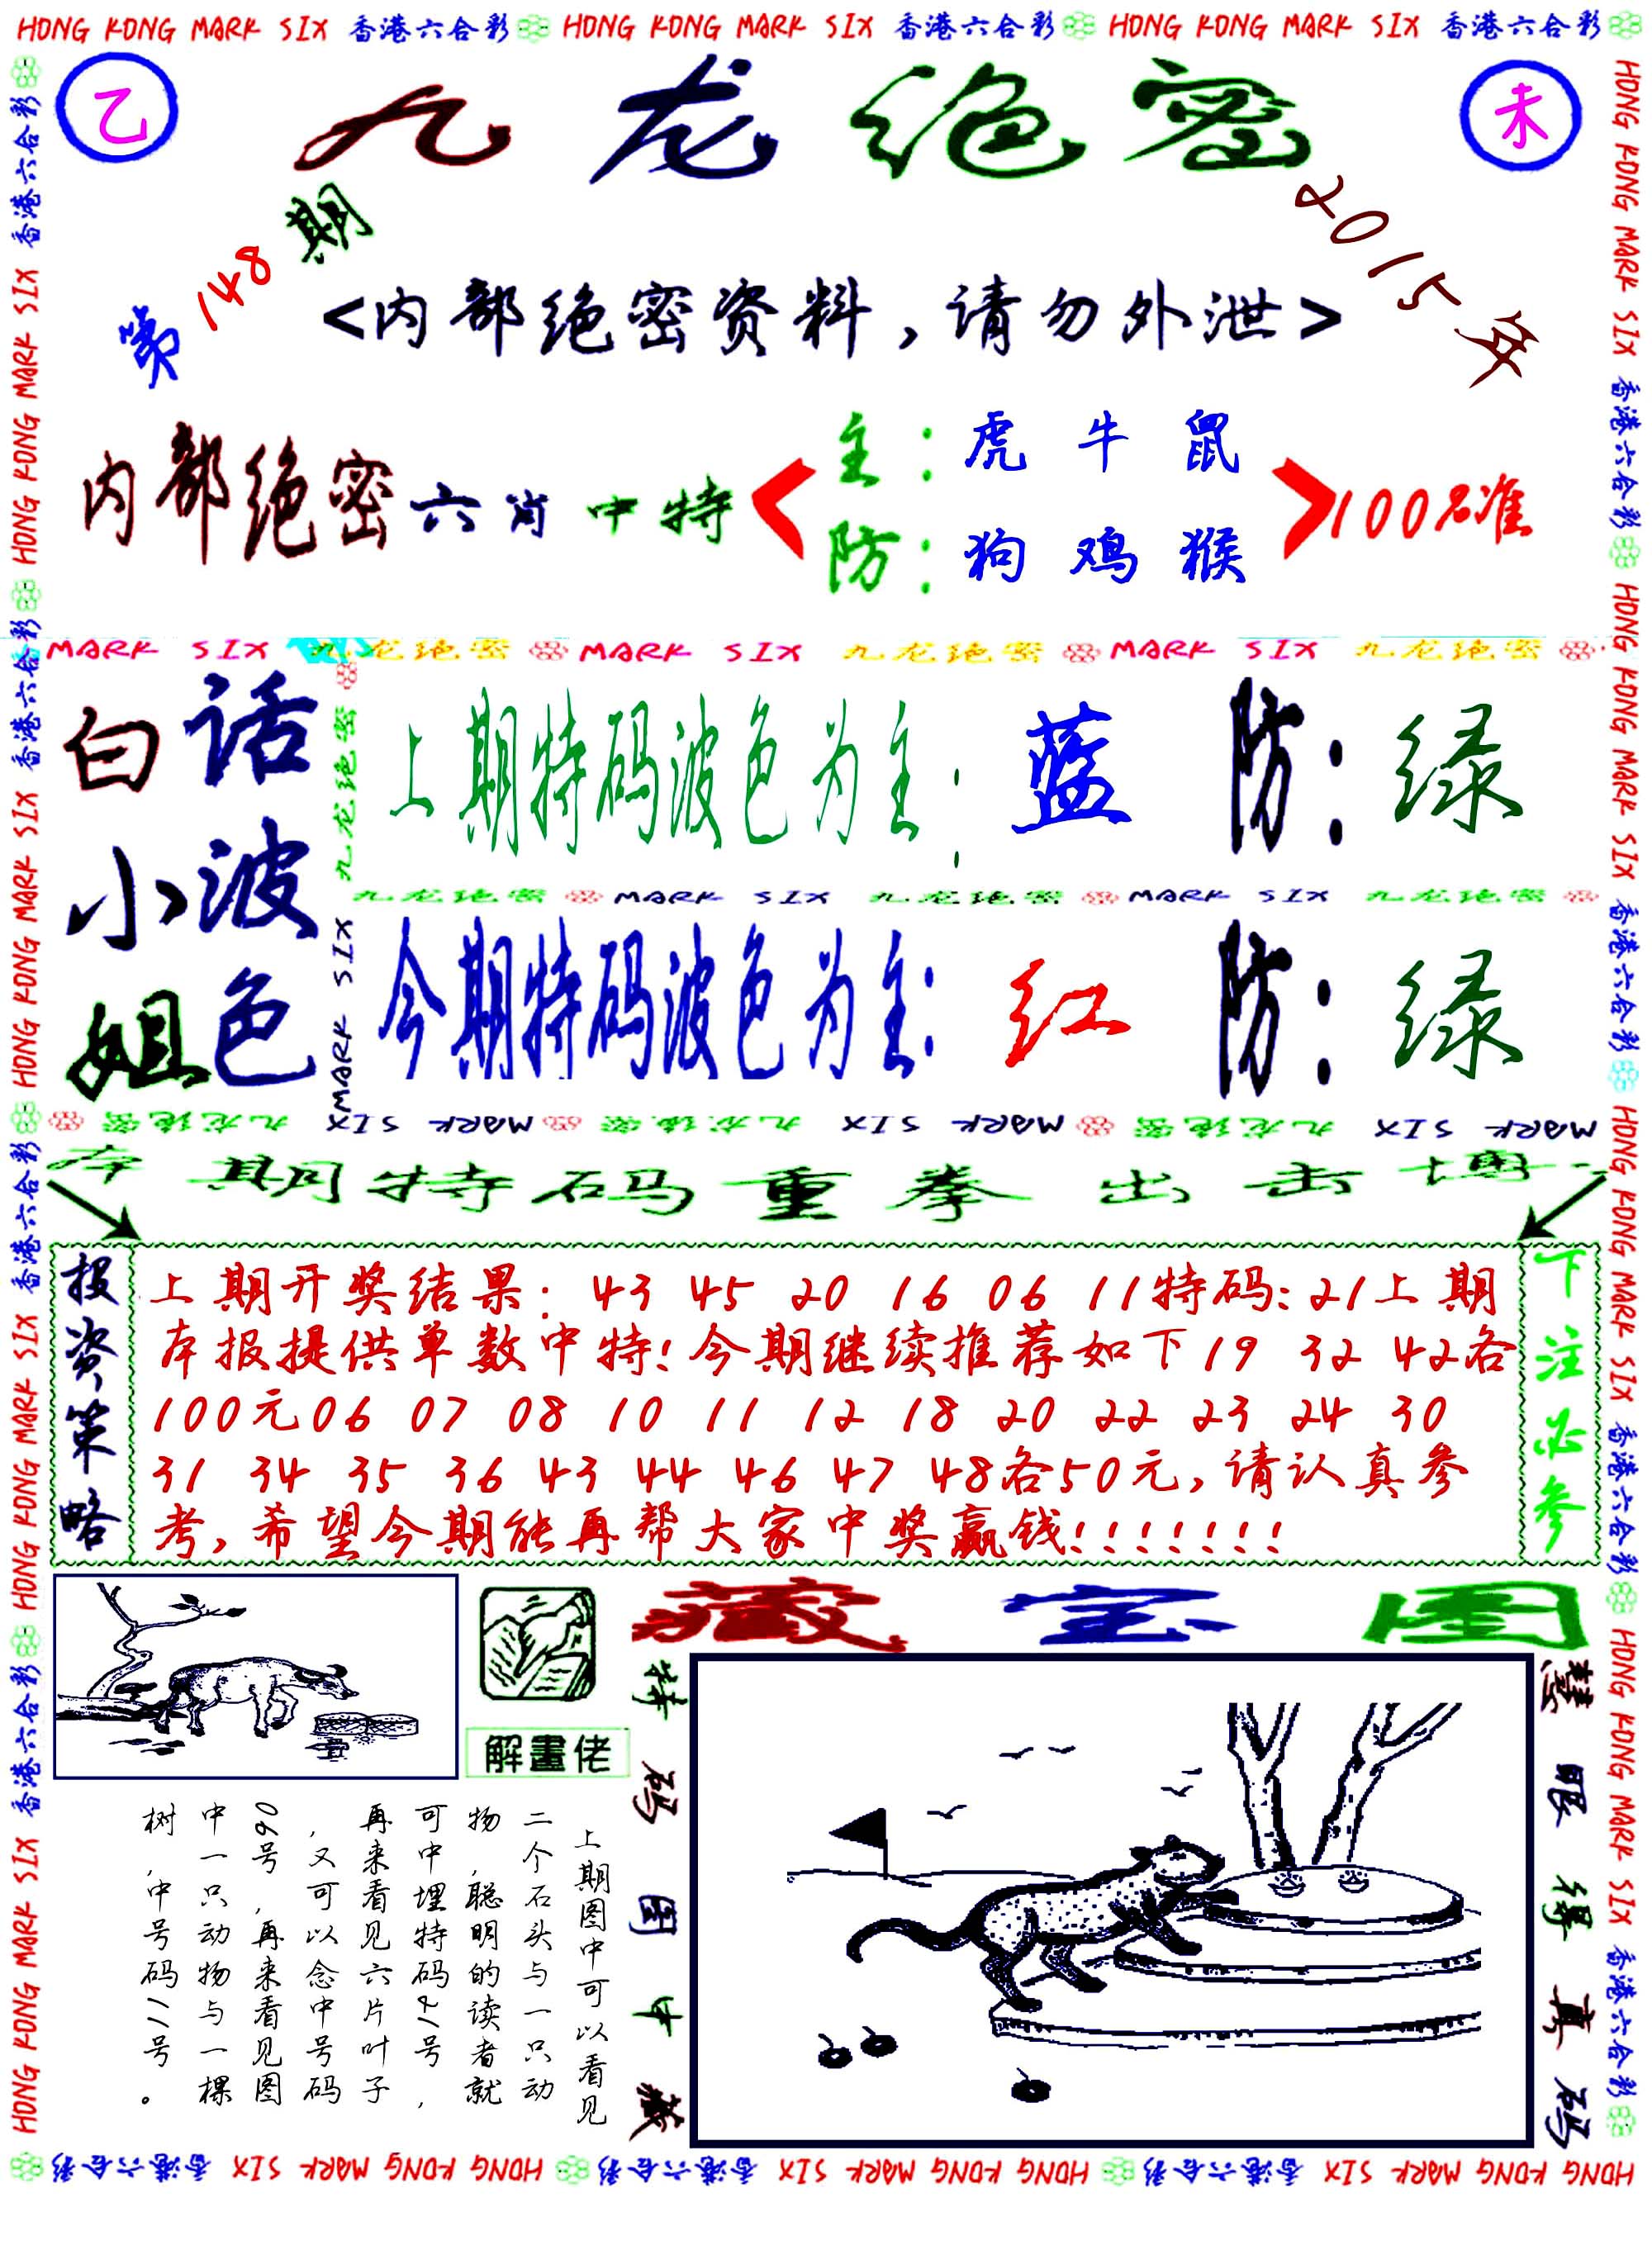 HONG KONG MARK SIX 香港六合彩 HONG KONG MARK SIX 香港六合彩 HONG KONG MARK SIX 香港六合彩
乙
九龙绝密
未
第148期
2015年
<内部绝密资料,请勿外泄>
内部绝密六肖中特
主:虎 牛 鼠
防:狗 鸡 猴
100%准
MARK SIX 九龙绝密 MARK SIX 九龙绝密 MARK SIX 九龙绝密
白小姐
话波色
九龙绝密 MARK SIX
上期特码波色为主:蓝 防:绿
九龙绝密 MARK SIX 九龙绝密 MARK SIX 九龙绝密
今期特码波色为主:红 防:绿
MARK SIX 九龙绝密 MARK SIX 九龙绝密 MARK SIX 九龙绝密
本期特码重拳出击博
投资策略
上期开奖结果:43 45 20 16 06 11特码:21上期
本报提供单数中特!今期继续推荐如下19 32 42各
100元06 07 08 10 11 12 18 20 22 23 24 30
31 34 35 36 43 44 46 47 48各50元,请认真参
考,希望今期能再帮大家中奖赢钱!!!!!!!
下注必参
解畫佬
上期图中可以看见
二个石头与一只动
物,聪明的读者就
可中埋特码21号,
再来看见六片叶子
,又可以念中号码
06号,再来看见图
中一只动物与一棵
树,中号码11号。
藏宝图
特码图中藏
慧眼得真码
HONG KONG MARK SIX 香港六合彩 HONG KONG MARK SIX 香港六合彩 HONG KONG MARK SIX 香港六合彩
HONG KONG MARK SIX 香港六合彩 HONG KONG MARK SIX 香港六合彩 HONG KONG MARK SIX 香港六合彩 HONG KONG MARK SIX 香港六合彩
HONG KONG MARK SIX 香港六合彩 HONG KONG MARK SIX 香港六合彩 HONG KONG MARK SIX 香港六合彩 HONG KONG MARK SIX 香港六合彩